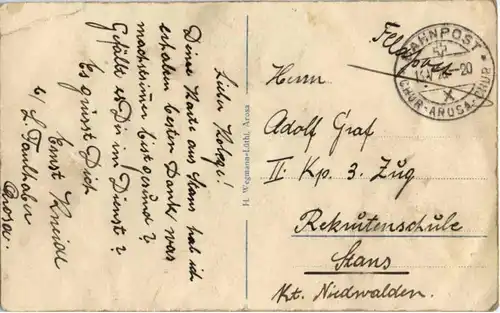 Lieber Kolege!
Deine Karte aus Stans hab ich
erhalten besten Dank was
machst immer bist gesund?
Gefällt es Dir im Dienst?
Es grüsst Dich
Ernst
b/ L. Faulhaber
Arosa.
H. Wegmann-Lüthi, Arosa
Feldpost
BAHNPOST
CHUR-AROSA-CHUR
Herrn
Adolf Graf
II. Kp 3. Zug
Rekrutenschule
Stans
Kt. Niedwalden.